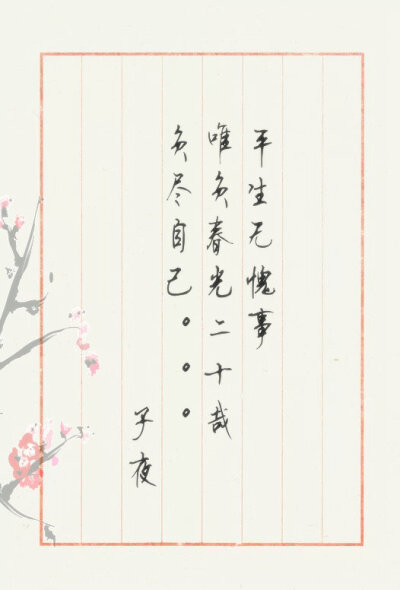 平生无愧事
唯负春光二十哉
负尽自己。。。
子夜